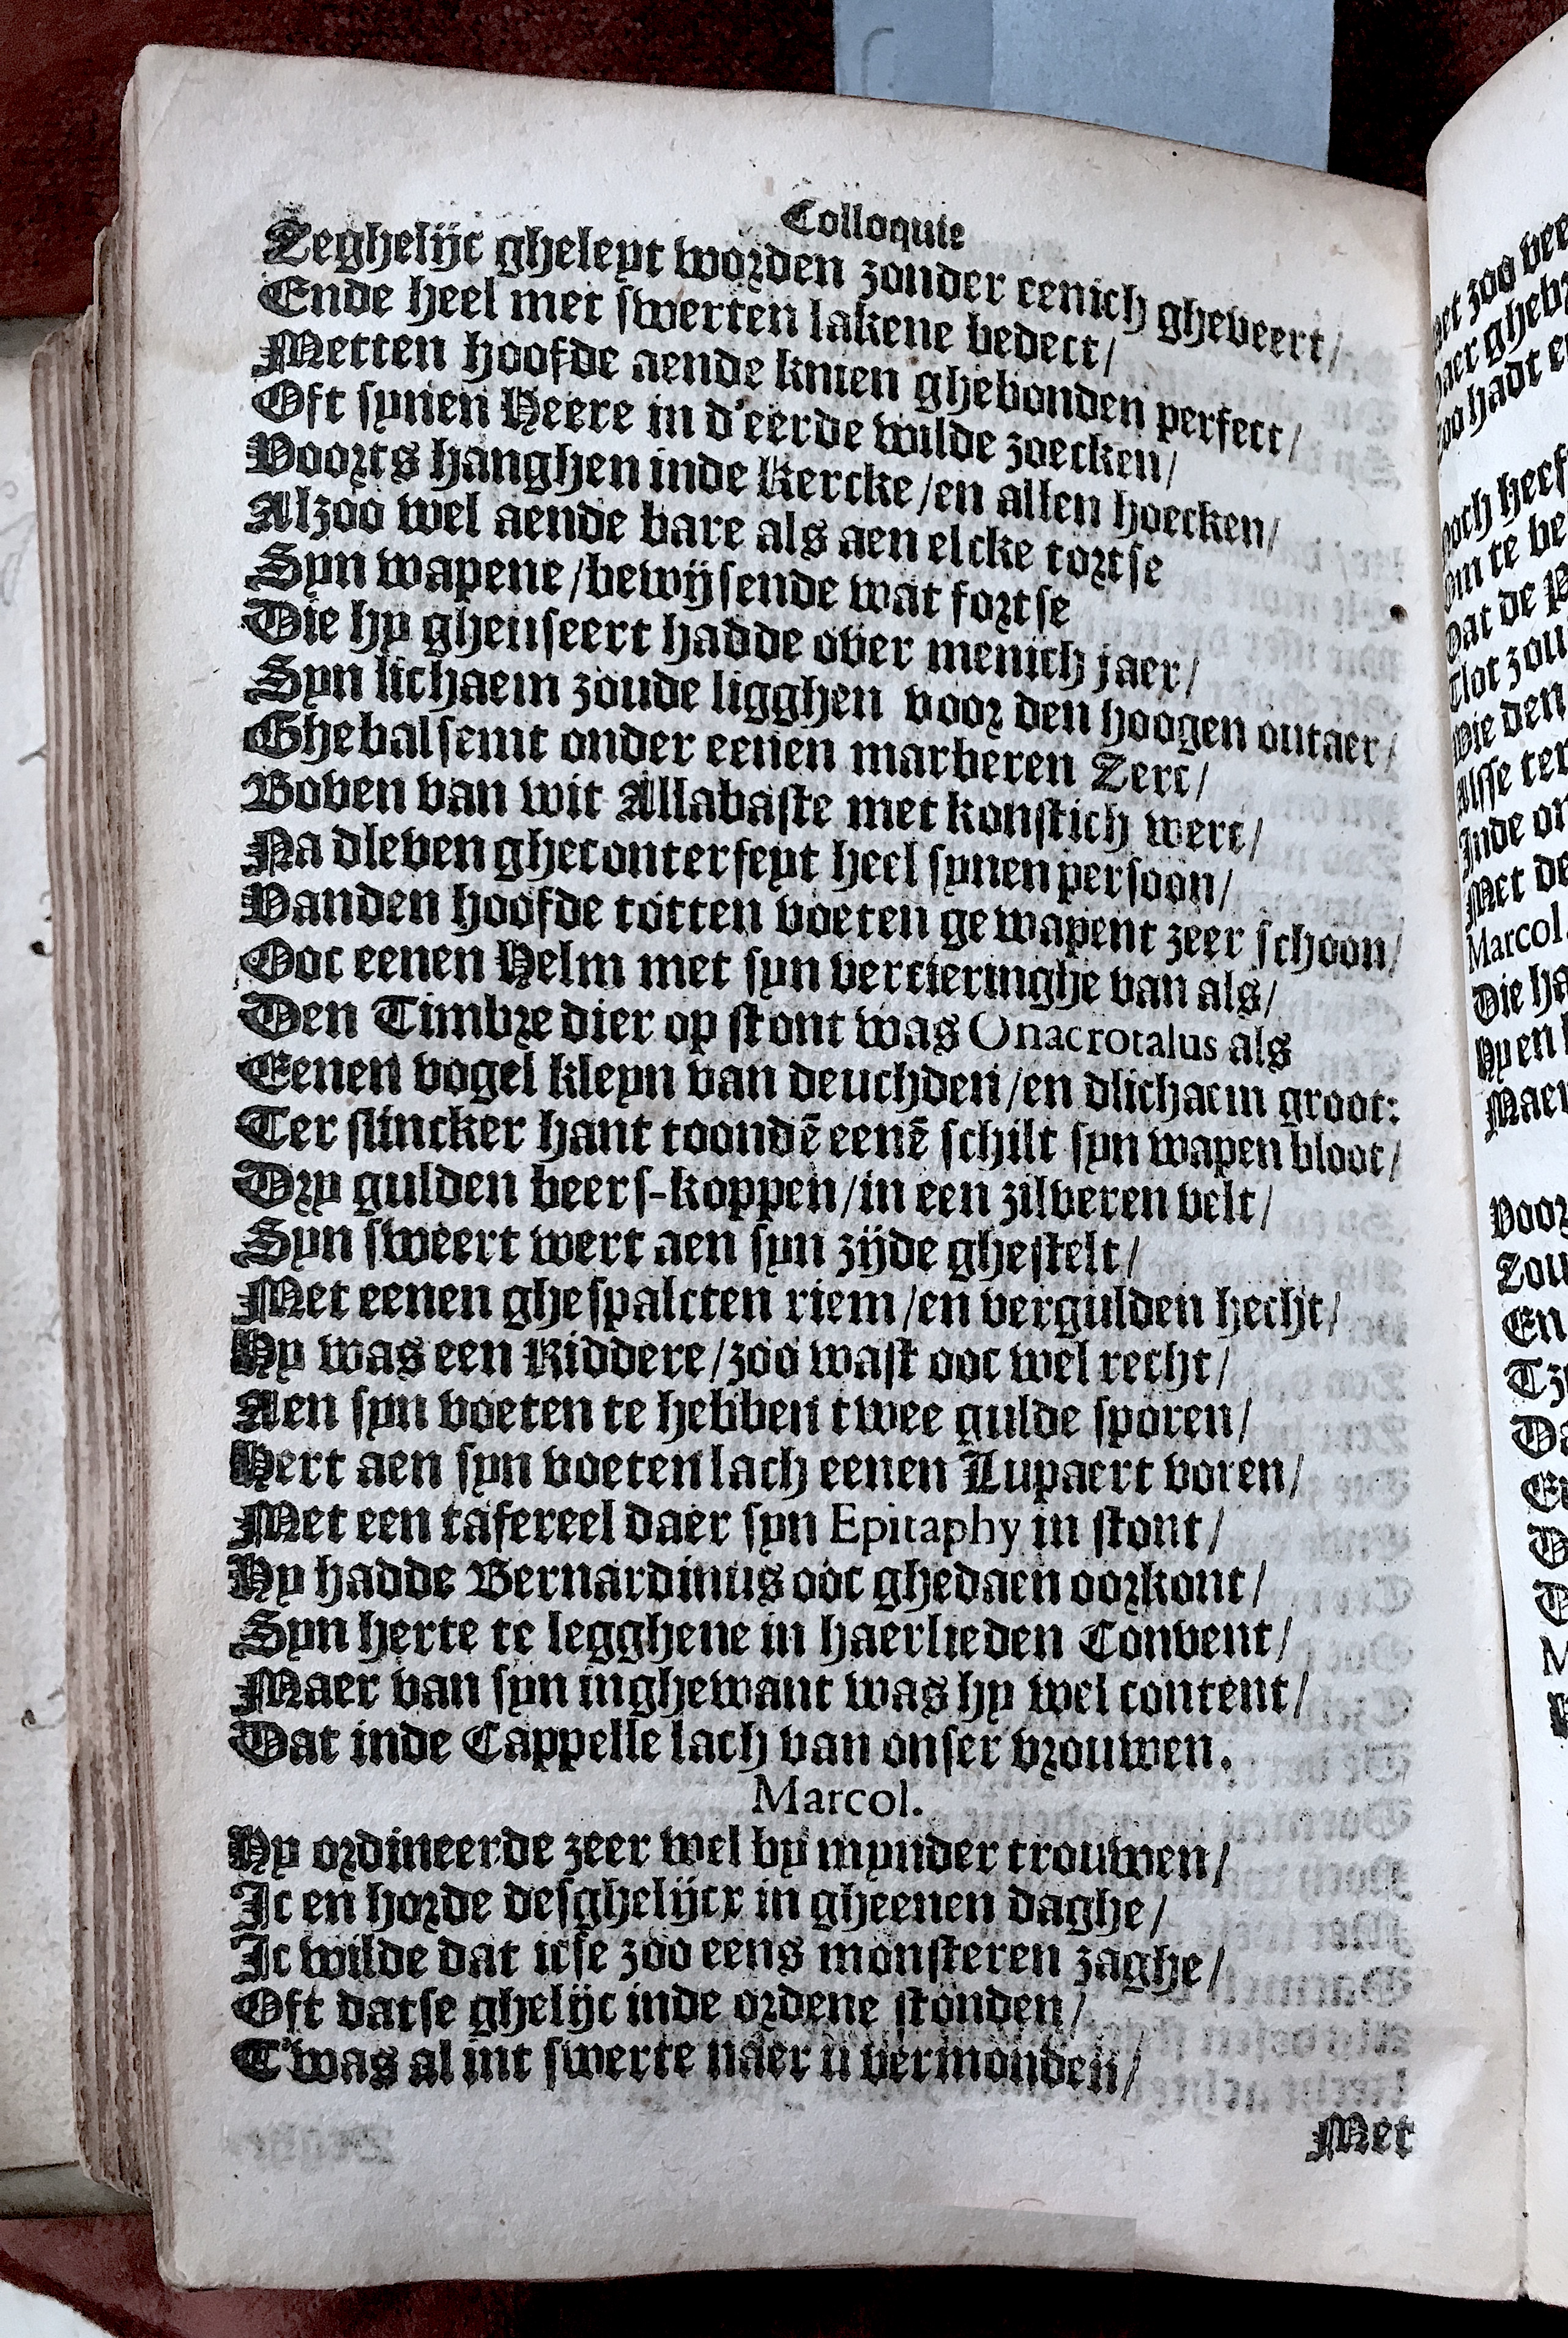 Colloquie
Zeghelijc gheleyt worden zonder eenich gheveert/
Ende heel met swerten lakene bedect/
Metten hoofde aende knien ghebonden perfect/
Oft synen Heere in d'eerde wilde zoecken/
Voorts hanghen inde Kercke/en allen hoecken/
Alzoo wel aende bare als aen elcke tortse
Syn wapene/bewijsende wat fortse
Die hy gheuseert hadde over menich jaer/
Syn lichaem zoude ligghen voor den hoogen outaer/
Ghebalsemt onder eenen marberen Zerc/
Boven van wit Allabaste met konstich werc/
Na dleven gheconterfeyt heel synen persoon/
Vanden hoofde totten voeten gewapent zeer schoon/
Ooc eenen Helm met syn vercieringhe van als/
Den Timbre dier op stont was Onacrotalus als
Eenen vogel kleyn van deuchden/en dlichaem groot:
Ter slincker hant toondē eenē schilt syn wapen bloot/
Dry gulden beers-koppen/in een zilveren velt/
Syn sweert wert aen syn zijde ghestelt/
Met eenen ghespalcten riem/en vergulden hecht/
Hy was een Riddere/zoo wast ooc wel recht/
Aen syn voeten te hebben twee gulde sporen/
Hert aen syn voeten lach eenen Lupaert voren/
Met een tafereel daer syn Epitaphy in stont/
Hy hadde Bernardinus ooc ghedaen oorkont/
Syn herte te legghene in haerlieden Convent/
Maer van syn inghewant was hy wel content/
Dat inde Cappelle lach van onser vrouwen.
Marcol.
Hy ordineerde zeer wel by mynder trouwen/
Ic en horde desghelijcx in gheenen daghe/
Ic wilde dat icse zoo eens monsteren zaghe/
Oft datse ghelijc inde ordene stonden/
T'was al int swerte naer u vermonden/
Met